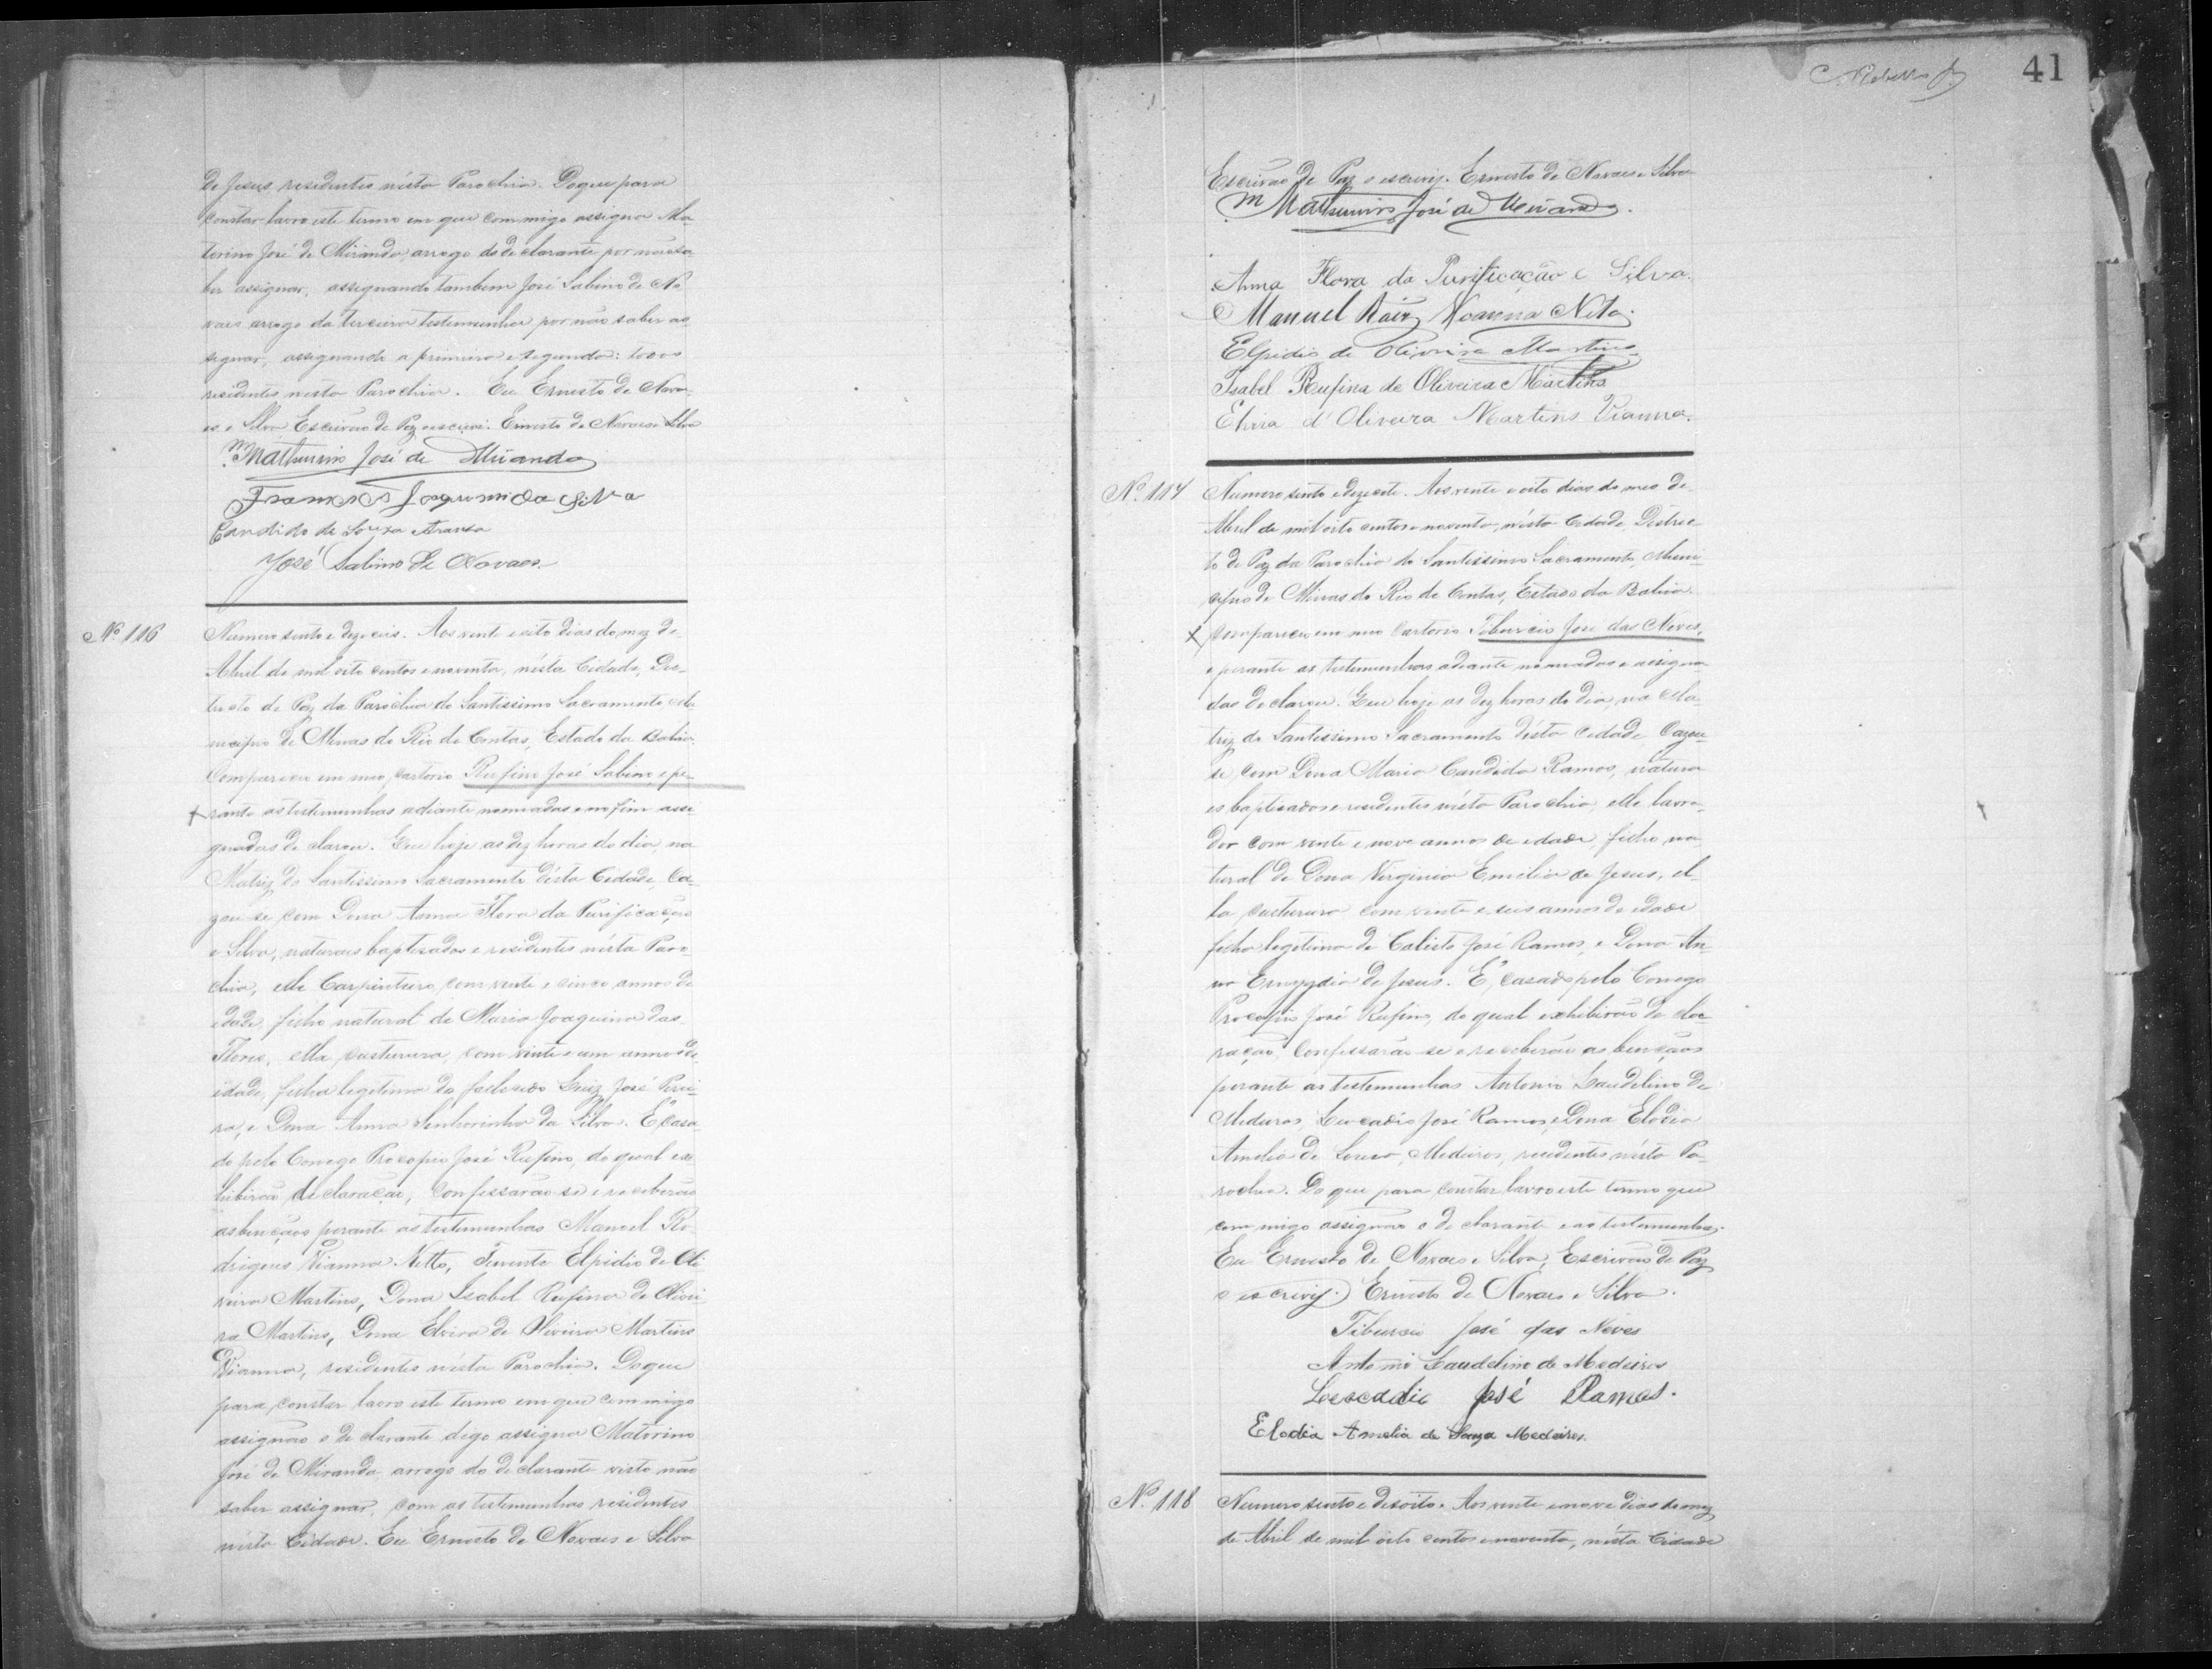 de Jesus, residentes nésta Parochia. Do que para
constar lavro este termo em que commigo assigna Ma-
torino José de Miranda, arrogo do declarante por não sa-
ber assignar, assignando tambem José Sabino de No-
vaes arrogo da terceira testemunha por não saber as-
signar, assignando a primeira e segunda: todos
residentes nesta Parochia. Eu Ernesto de Nova-
es e Silva Escrivão de Paz o escrevi. Ernesto de Novaes e Silva
Mathurino José de Miranda
Francisco Joaquim da Silva
Candido de Souza Aranha
José Sabino de Novaes.
Nº 116
Numero sento e dezeceis. Aos vente e oito dias do mez de
Abril de mil oito centos e noventa, nésta Cidade, Des-
tricto de Paz da Parochia do Santissimo Sacramento Mu-
nicipio de Minas do Rio de Contas, Estado da Bahia.
Compareceu em meo Cartorio Rufino José Sabino, e pe-
rante as testemunhas adiante nomeadas e no fim assi-
gnadas declarou. Que hoje as dez horas do dia, na
Matriz do Santissimo Sacramento désta Cidade, Ca-
zou-se com Dona Anna Flora da Purificação
e Silva, naturaes baptisados e residentes nésta Paro-
chia, elle Carpinteiro, com vente e cinco annos de
edade, filho natural de Maria Joaquina das
Flores, ella custureira, com vinte e um annos de
idade, filha legitima do fallecido Luiz José Perei-
ra, e Dona Anna Senhorinha da Silva. É casa-
do pelo Conego Procopio José Rufino, do qual ex-
hibirão declaração, Confessarão-se e receberão
as bençãos perante as testemunhas Manoel Ro-
drigues Vianna Netto, Tenente Elpidio de Oli-
veira Martins, Dona Isabel Rufina de Olivei-
ra Martins, Dona Elvira de Oliveira Martins
Vianna, residentes nésta Parochia. Do que
para constar lavro este termo em que commigo
assignão o declarante digo assigna Matorino
José de Miranda arrogo do declarante visto não
saber assignar, com as testemunhas residentes
nésta Cidade. Eu Ernesto de Novaes e Silva
41
Escrivão de Paz o escrivy. Ernesto de Novaes e Silva
Mathurino José de Miranda.
Anna Flora da Purificação e Silva.
Manuel Roiz Vianna Neto.
Elpidio de Oliveira Martins
Isabel Rufina de Oliveira Martins
Elvira d'Oliveira Martins Vianna.
Nº 117
Numero sento e dezecete. Aos vente e oito dias do mes de
Abril de mil oito centos e noventa, nésta Cidade Destric-
to de Paz da Parochia do Santissimo Sacramento, Muni-
cipio de Minas do Rio de Contas, Estado da Bahia
Compareceu em meo Cartorio Tiburcio José das Neves,
e perante as testemunhas adiante nomeadas e assigna-
das declarou. Que hoje as dez horas do dia, na Ma-
triz do Santissimo Sacramento désta Cidade, Cazou-
se com Dona Maria Candida Ramos, natura-
es baptisados e residentes nésta Parochia, elle lavra-
dor com vente e nove annos de edade, filho na-
tural de Dona Virginia Emilia de Jesus, el-
la custureira com vente e seis annos de edade
filha legitima de Calisto José Ramos, e Dona An-
na Emygdia de Jesus. É casado pelo Conego
Procopio José Rufino, do qual exhibirão decla-
ração, Confessarão-se e receberão as bençãos
perante as testemunhas Antonio Laudelino de
Medeiros, Leocadio José Ramos, e Dona Elodia
Amelia de Souza Medeiros, residentes nésta Pa-
rochia. Do que para constar lavro este termo que
commigo assignão o declarante e as testemunhas.
Eu Ernesto de Novaes e Silva, Escrivão de Paz
o escrivy. Ernesto de Novaes e Silva.
Tiburcio José das Neves
Antonio Laudelino de Medeiros
Leocadio José Ramos.
Elodia Amelia de Souza Medeiros.
Nº 118
Numero sento e desoito. Aos vente e nove dias do mez
de Abril de mil oito centos e noventa, nésta Cidade